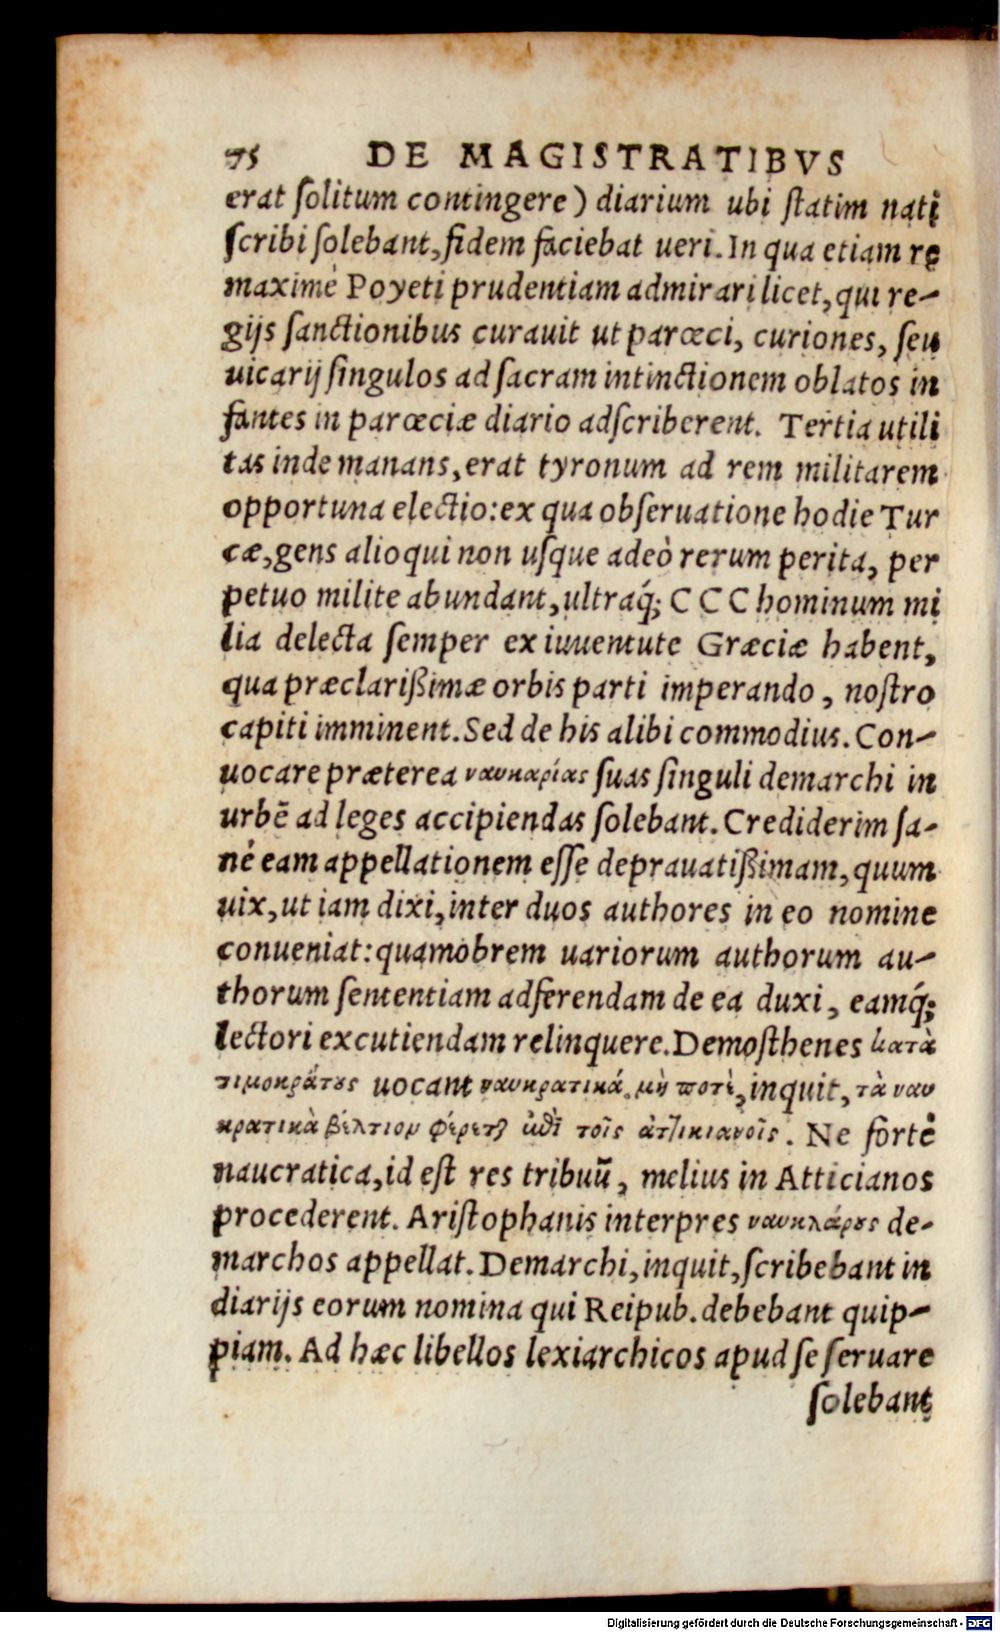 75 DE MAGISTRATIBVS
erat ſolitum contingere) diarium ubi ſtatim nati
ſcribi ſolebant, fidem faciebat ueri. In qua etiam re
maximè Poyeti prudentiam admirari licet, qui re-
gijs ſanctionibus curauit ut parœci, curiones, ſeu
uicarij ſingulos ad ſacram intinctionem oblatos in
fantes in parœciæ diario adſcriberent. Tertia utili
tas inde manans, erat tyronum ad rem militarem
opportuna electio: ex qua obſeruatione hodie Tur
cæ, gens alioqui non uſque adeò rerum perita, per
petuo milite abundant, ultraq́; CCC hominum mi
lia delecta ſemper ex iuuentute Græciæ habent,
qua præclarißimæ orbis parti imperando, noſtro
capiti imminent. Sed de his alibi commodius. Con-
uocare præterea ναυκαρίας ſuas ſinguli demarchi in
urbē ad leges accipiendas ſolebant. Crediderim ſa-
nè eam appellationem eſſe deprauatißimam, quum
uix, ut iam dixi, inter duos authores in eo nomine
conueniat: quamobrem uariorum authorum au-
thorum ſententiam adferendam de ea duxi, eamq́;
lectori excutiendam relinquere. Demoſthenes κατὰ
τιμοκράτους uocant ναυκρατικά. μὴ ποτὲ, inquit, τὰ ναυ
κρατικὰ βέλτιον φέρεται τοῖς ἀττικιανοῖς. Ne fortè
naucratica, id eſt res tribuū, melius in Atticianos
procederent. Ariſtophanis interpres ναυκλάρους de-
marchos appellat. Demarchi, inquit, ſcribebant in
diarijs eorum nomina qui Reipub. debebant quip-
piam. Ad hæc libellos lexiarchicos apud ſe ſeruare
ſolebant
Digitalisierung gefördert durch die Deutsche Forschungsgemeinschaft - DFG